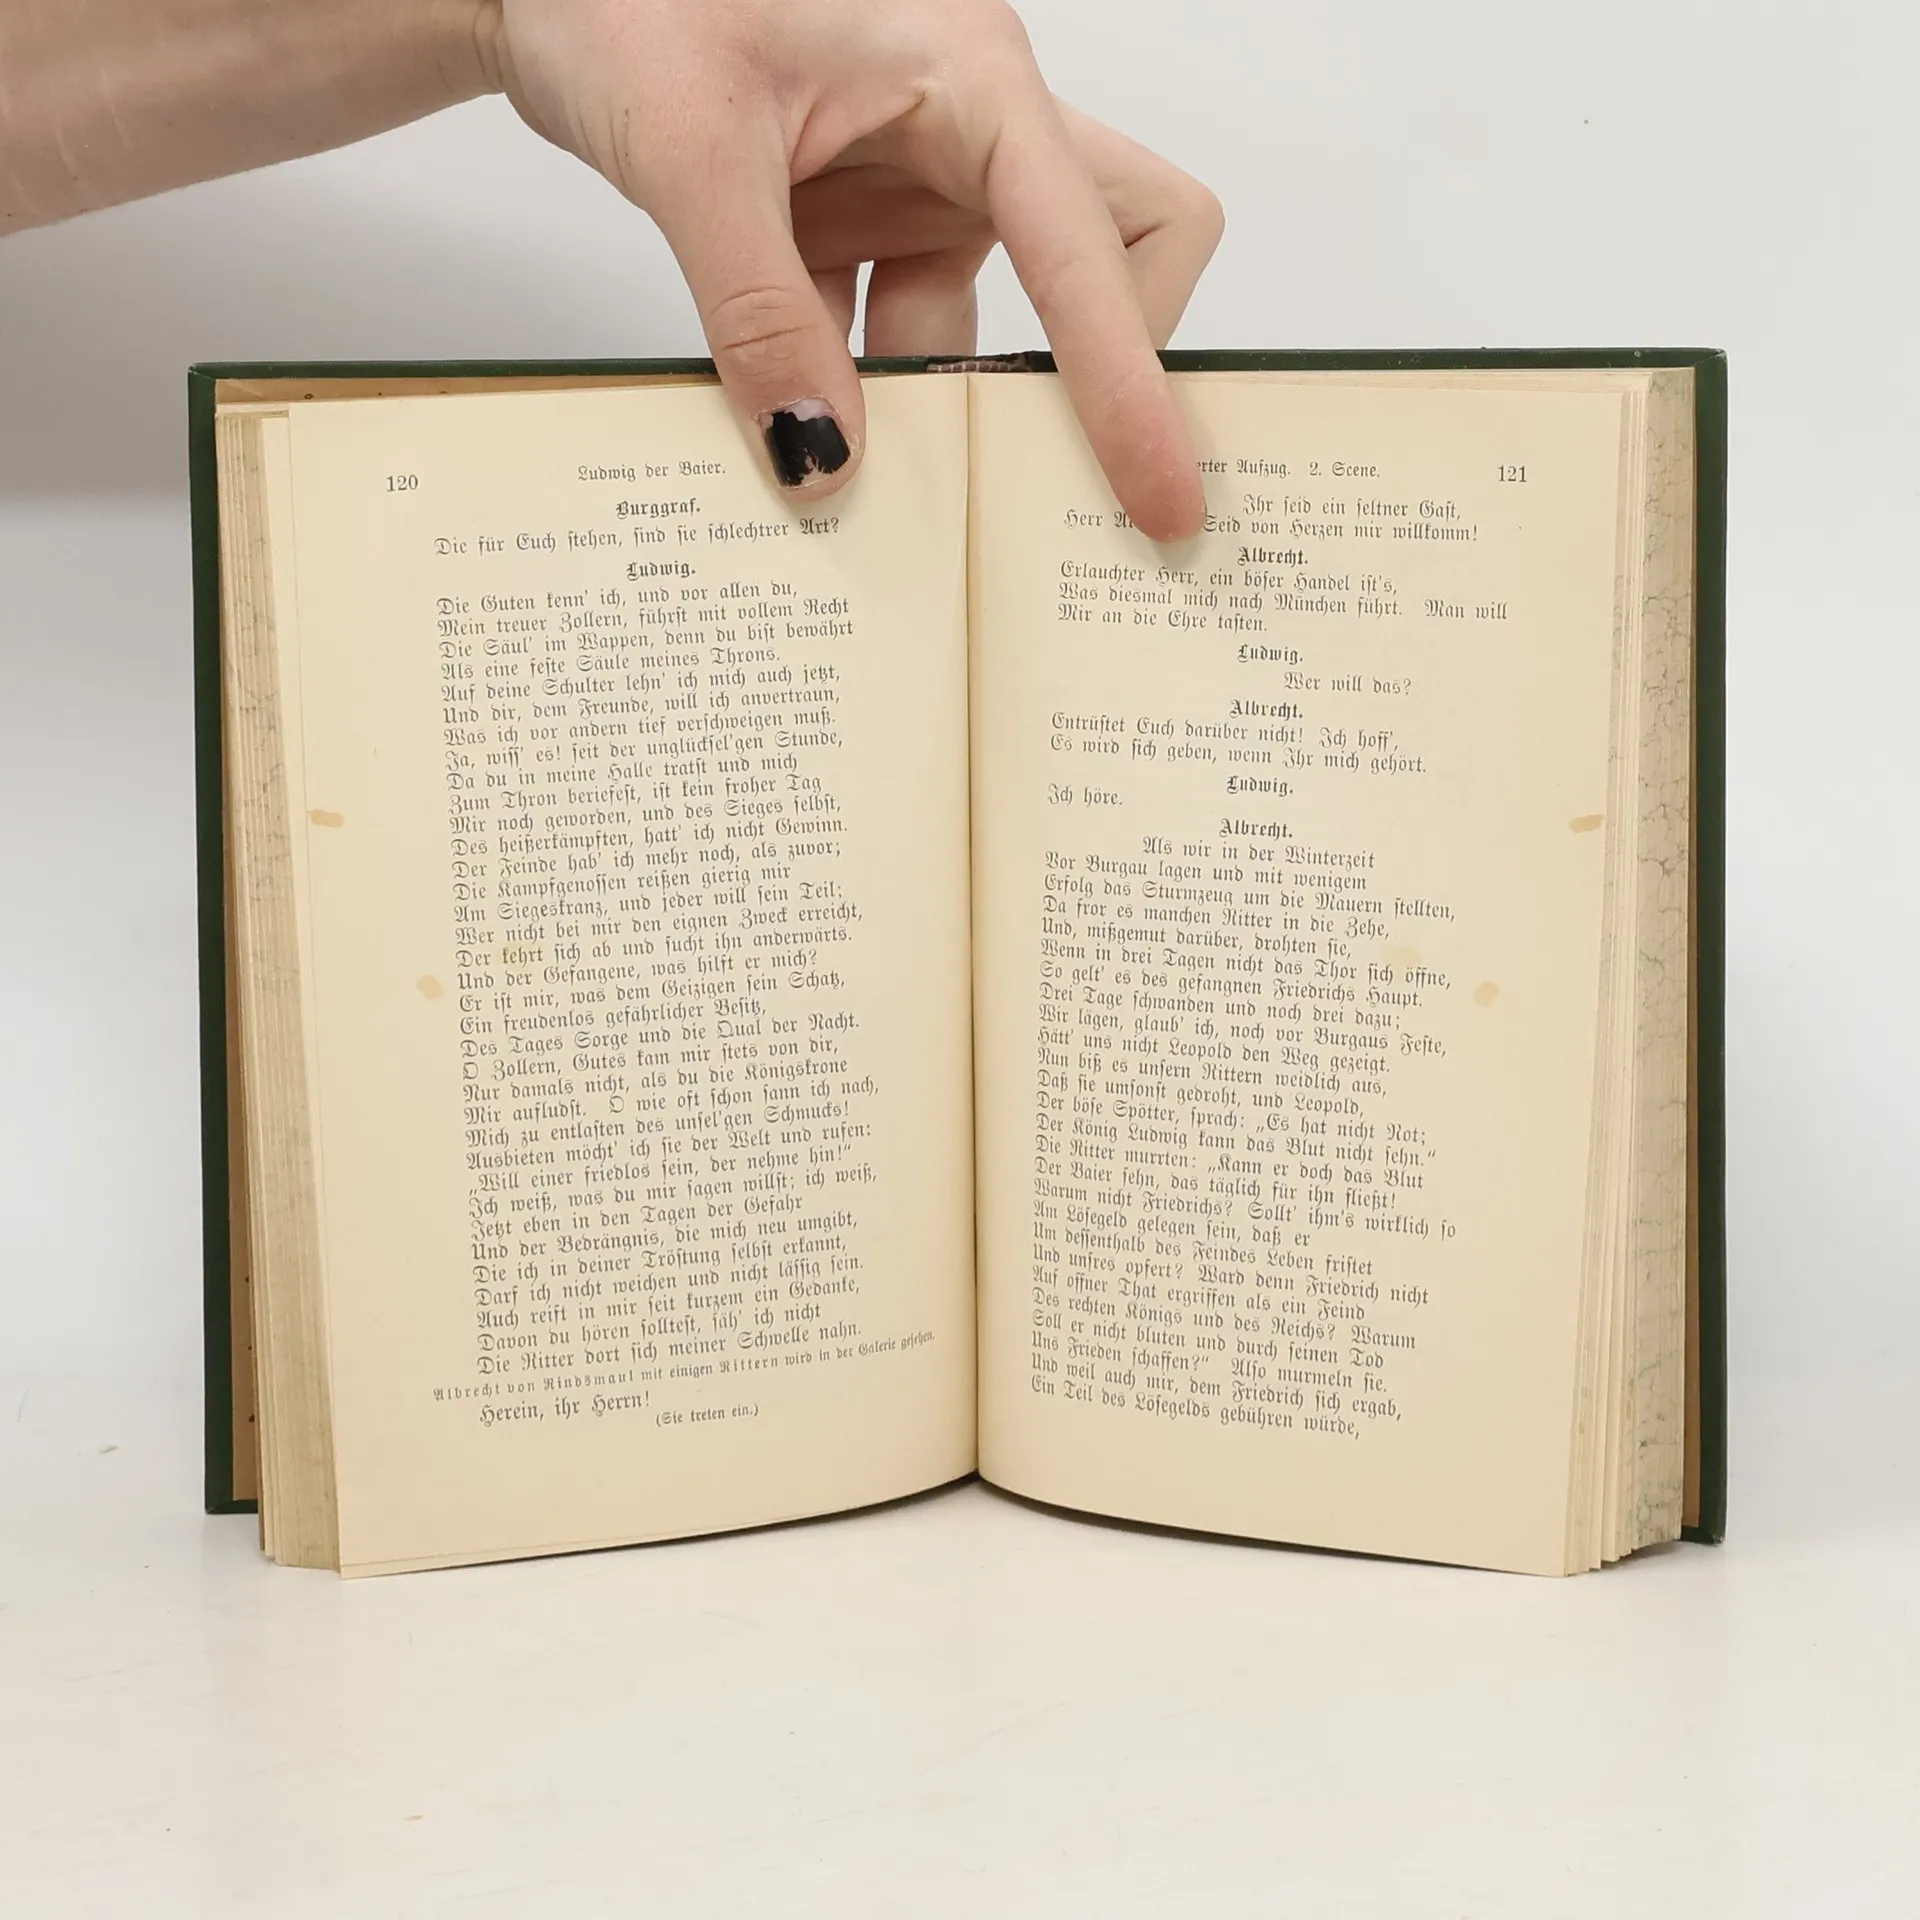 120
Ludwig der Baier.
Burggraf.
Die für Euch stehen, sind sie schlechtrer Art?
Ludwig.
Die Guten kenn' ich, und vor allen du,
Mein treuer Zollern, führst mit vollem Recht
Die Säul' im Wappen, denn du bist bewährt
Als eine feste Säule meines Throns.
Auf deine Schulter lehn' ich mich auch jetzt,
Und dir, dem Freunde, will ich anvertraun,
Was ich vor andern tief verschweigen muß.
Ja, wiss' es! seit der unglücksel'gen Stunde,
Da du in meine Halle tratst und mich
Zum Thron beriefest, ist kein froher Tag
Mir noch geworden, und des Sieges selbst,
Des heißerkämpften, hatt' ich nicht Gewinn.
Der Feinde hab' ich mehr noch, als zuvor;
Die Kampfgenossen reißen gierig mir
Am Siegeskranz, und jeder will sein Teil;
Wer nicht bei mir den eignen Zweck erreicht,
Der kehrt sich ab und sucht ihn anderwärts.
Und der Gefangene, was hilft er mich?
Er ist mir, was dem Geizigen sein Schatz,
Ein freudenlos gefährlicher Besitz,
Des Tages Sorge und die Qual der Nacht.
O Zollern, Gutes kam mir stets von dir,
Nur damals nicht, als du die Königskrone
Mir aufludst. O wie oft schon sann ich nach,
Mich zu entlasten des unsel'gen Schmucks!
Ausbieten möcht' ich sie der Welt und rufen:
„Will einer friedlos sein, der nehme hin!“
Ich weiß, was du mir sagen willst; ich weiß,
Jetzt eben in den Tagen der Gefahr
Und der Bedrängnis, die mich neu umgibt,
Die ich in deiner Tröstung selbst erkannt,
Darf ich nicht weichen und nicht lässig sein.
Auch reift in mir seit kurzem ein Gedanke,
Davon du hören solltest, säh' ich nicht
Die Ritter dort sich meiner Schwelle nahn.
Albrecht von Rindsmaul mit einigen Rittern wird in der Galerie gesehen.
Herein, ihr Herrn!
(Sie treten ein.)
erter Aufzug. 2. Scene.
121
Ihr seid ein seltner Gast,
Herr Seid von Herzen mir willkomm!
Albrecht.
Erlauchter Herr, ein böser Handel ist's,
Was diesmal mich nach München führt. Man will
Mir an die Ehre tasten.
Ludwig.
Wer will das?
Albrecht.
Entrüstet Euch darüber nicht! Ich hoff',
Es wird sich geben, wenn Ihr mich gehört.
Ludwig.
Ich höre.
Albrecht.
Als wir in der Winterzeit
Vor Burgau lagen und mit wenigem
Erfolg das Sturmzeug um die Mauern stellten,
Da fror es manchen Ritter in die Zehe,
Und, mißgemut darüber, drohten sie,
Wenn in drei Tagen nicht das Thor sich öffne,
So gelt' es des gefangnen Friedrichs Haupt.
Drei Tage schwanden und noch drei dazu;
Wir lägen, glaub' ich, noch vor Burgaus Feste,
Hätt' uns nicht Leopold den Weg gezeigt.
Nun biß es unsern Rittern weidlich aus,
Daß sie umsonst gedroht, und Leopold,
Der böse Spötter, sprach: „Es hat nicht Not;
Der König Ludwig kann das Blut nicht sehn.“
Die Ritter murrten: „Kann er doch das Blut
Der Baier sehn, das täglich für ihn fließt!
Warum nicht Friedrichs? Sollt' ihm's wirklich so
Am Lösegeld gelegen sein, daß er
Um dessenthalb des Feindes Leben fristet
Und unsres opfert? Ward denn Friedrich nicht
Auf offner That ergriffen als ein Feind
Des rechten Königs und des Reichs? Warum
Soll er nicht bluten und durch seinen Tod
Uns Frieden schaffen?“ Also murmeln sie.
Und weil auch mir, dem Friedrich sich ergab,
Ein Teil des Lösegelds gebühren würde,